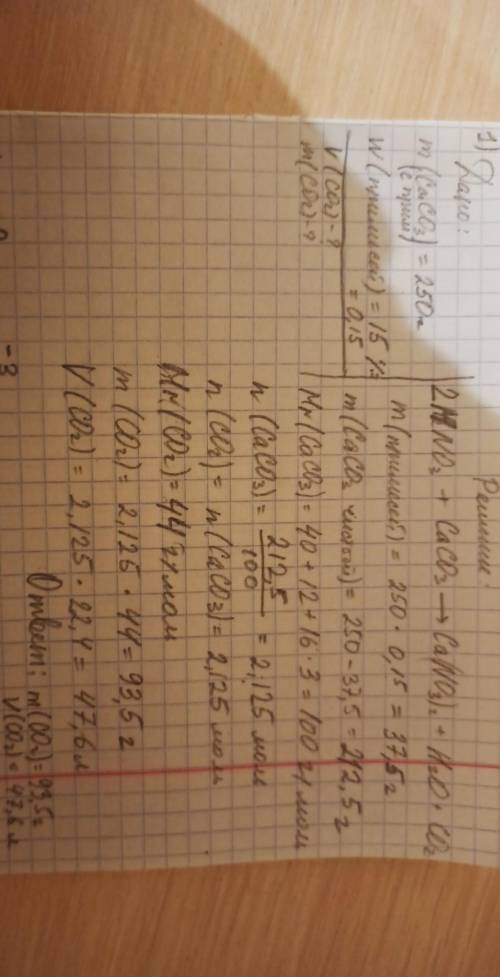 1) Дано:
m (CaCO₃ с прим) = 250г
W (примесей) = 15 %
= 0,15
V(CO₂) - ?
m(CO₂) - ?
Решение:
2HNO₃ + CaCO₃ → Ca(NO₃)₂ + H₂O + CO₂
m(примесей) = 250 · 0,15 = 37,5 г
m(CaCO₃ чистой) = 250 - 37,5 = 212,5 г
Mr(CaCO₃) = 40 + 12 + 16 · 3 = 100 г/моль
n (CaCO₃) = 212,5 / 100 = 2,125 моль
n (CO₂) = n(CaCO₃) = 2,125 моль
Mr(CO₂) = 44 г/моль
m (CO₂) = 2,125 · 44 = 93,5 г
V(CO₂) = 2,125 · 22,4 = 47,6 л
Ответ: m(CO₂) = 93,5г
V(CO₂) = 47,6 л